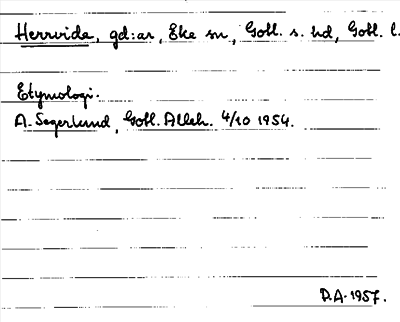 Herrvida, gd:ar, Eke sn, Gotl. s. hd, Gotl. l.
Etymologi.
A. Segerlund, Gotl. Alleh. 4/10 1954.
D.A. 1957.